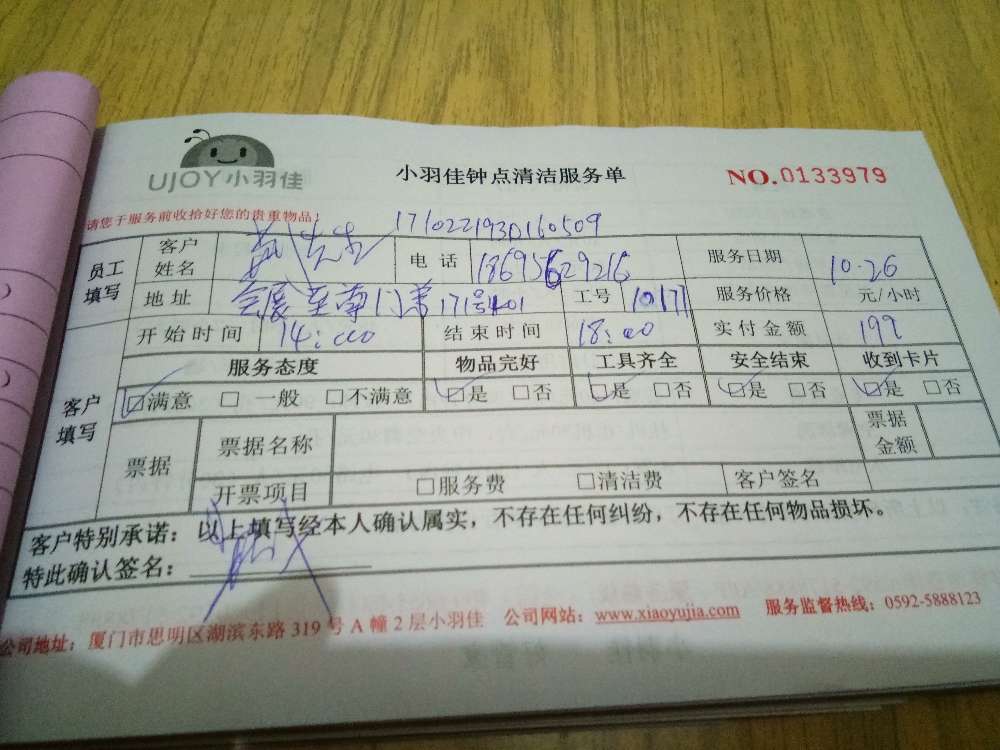 UJOY小羽佳
小羽佳钟点清洁服务单 NO.0133979
请您于服务前收拾好您的贵重物品！
员工填写 客户姓名 先生 电话 服务日期 10.26
地址 171号 工号 10171 服务价格 元/小时
开始时间 14:00 结束时间 18:00 实付金额 199
客户填写 服务态度 物品完好 工具齐全 安全结束 收到卡片
☑满意 □一般 □不满意 ☑是 □否 ☑是 □否 ☑是 □否 ☑是 □否
票据 票据名称 票据金额
开票项目 □服务费 □清洁费 客户签名
客户特别承诺：以上填写经本人确认属实，不存在任何纠纷，不存在任何物品损坏。
特此确认签名：
公司地址：厦门市思明区湖滨东路 319 号 A 幢 2 层小羽佳 公司网站：www.xiaoyujia.com 服务监督热线：0592-5888123